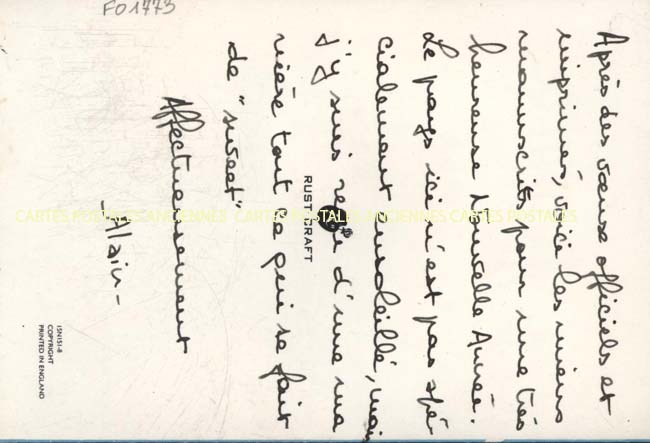 FO1773
Après des vœux officiels et
imprimés, voici les miens
manuscrits pour une très
heureuse Nouvelle Année.
Le pays ici n'est pas spé-
cialement ensoleillé, mais
j'y suis reçu d'une ma
nière tout ce qui se fait
de "sweet"
Affectueusement
-Alain-
RUST CRAFT
CARTES POSTALES ANCIENNES CARTES POSTALES ANCIENNES CARTES POSTALES
15N151-8
COPYRIGHT
PRINTED IN ENGLAND